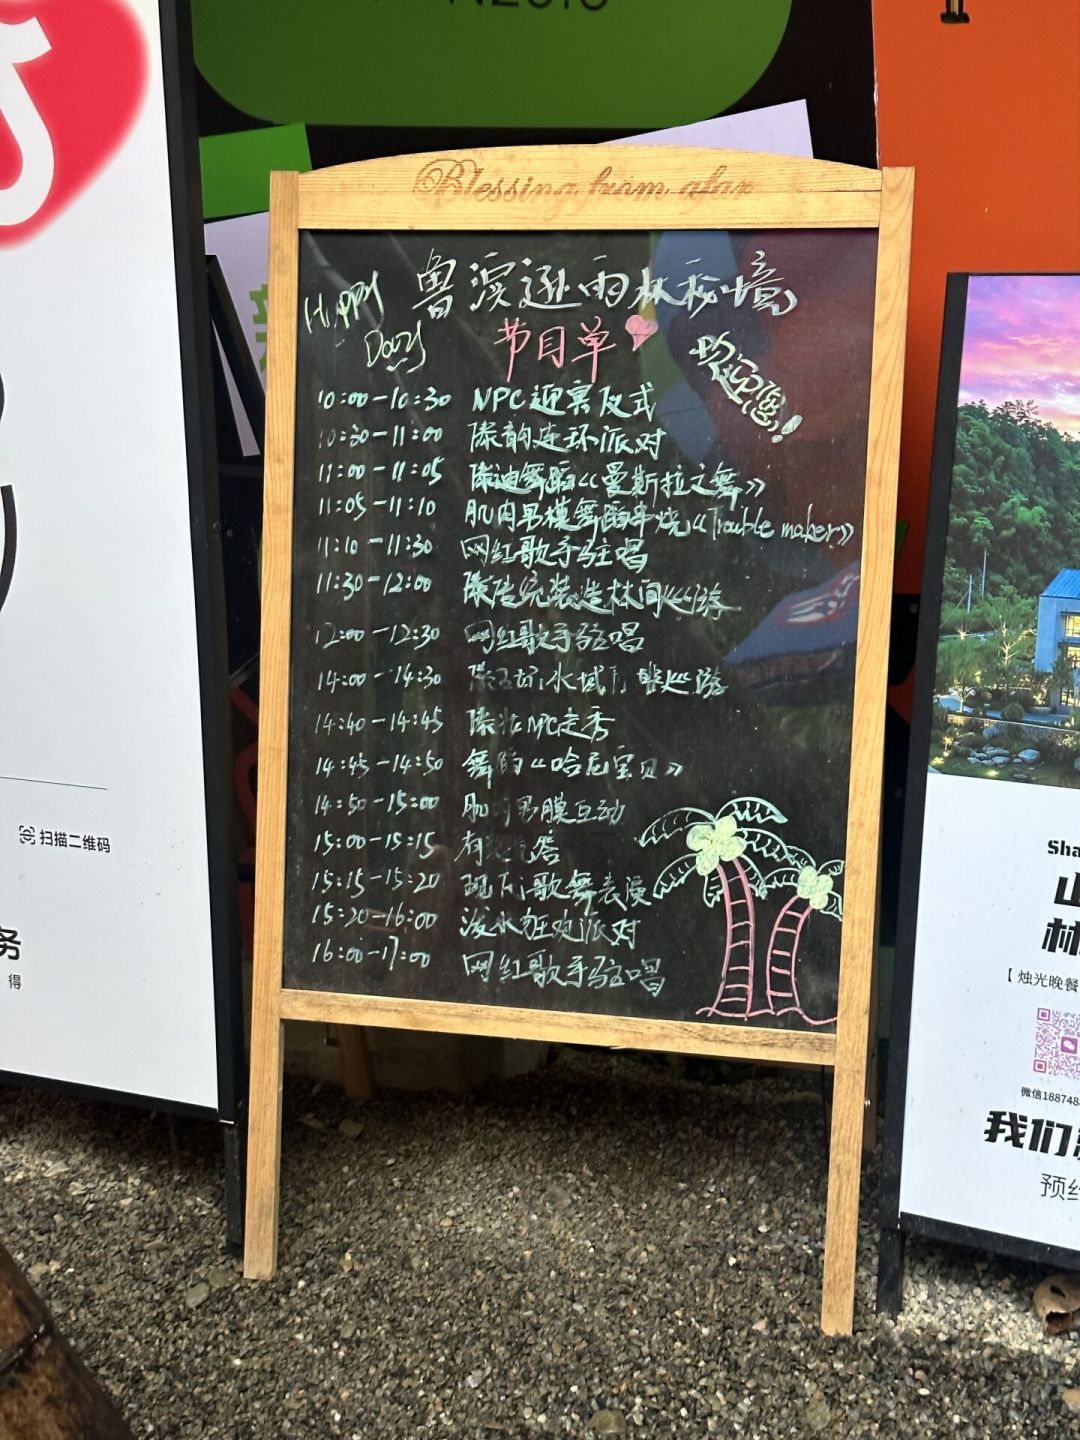 Blessing from afar
Happy
Day
鲁滨逊雨林秘境
节目单
欢迎您!
10:00-10:30 NPC迎宾仪式
10:30-11:00 傣韵连环派对
11:00-11:05 傣迪舞蹈《曼斯拉之舞》
11:05-11:10 肌肉男模舞蹈串烧《Trouble maker》
11:10-11:30 网红歌手驻唱
11:30-12:00 傣传统装造林间巡游
12:00-12:30 网红歌手驻唱
14:00-14:30 水域 巡游
14:40-14:45 傣 NPC走秀
14:45-14:50 舞蹈《哈尼宝贝》
14:50-15:00 肌肉男膜互动
15:00-15:15 有奖 答
15:15-15:20 现 歌舞表演
15:20-16:00 泼水狂欢派对
16:00-17:00 网红歌手驻唱
扫描二维码
务
得
Sha
山
林
【烛光晚餐
微信188748
我们
预约